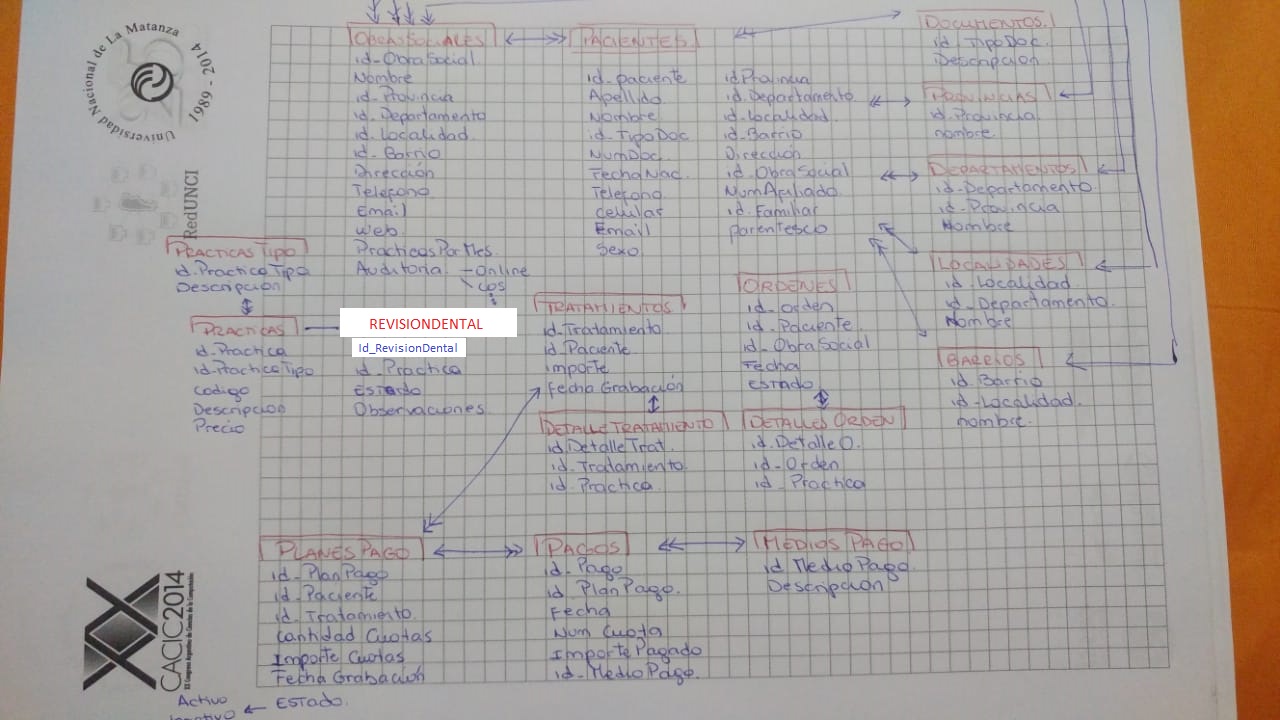 Universidad Nacional de La Matanza
1989 - 2014
RedUNCI
OBRAS SOCIALES
id-ObraSocial
Nombre
id-Provincia
id-Departamento
id-Localidad
id-Barrio
Dirección
Telefono
Email
Web
PracticasPorMes
Auditoria - Online
cos
PACIENTES
id-paciente
Apellido
Nombre
id-TipoDoc
NumDoc
FechaNac.
Telefono
celular
Email
Sexo
id.Provincia
id.Departamento
id-Localidad
id-Barrio
Dirección
id-ObraSocial
NumAfiliado
id.Familiar
parentesco
DOCUMENTOS.
id-TipoDoc.
Descripcion
PROVINCIAS
id.Provincia
nombre.
DEPARTAMENTOS
id-Departamento
id-Provincia
Nombre
LOCALIDADES
id-Localidad
id-Departamento
Nombre
BARRIOS
id-Barrio
id-Localidad.
nombre.
PRACTICASTIPO
id.PracticaTipo
Descripcion
PRACTICAS
id-Practica
id-PracticaTipo
codigo
Descripcion
Precio
REVISIONDENTAL
Id_RevisionDental
id-Practica
Estado
Observaciones
TRATAMIENTOS
id-Tratamiento
id-Paciente
importe
Fecha Grabación
ORDENES
id-orden
id-Paciente
id-ObraSocial
Fecha
estado
DETALLETRATAMIENTO
id.DetalleTrat.
id-Tratamiento
id-Practica
DETALLES ORDEN
id.DetalleO.
id-Orden
id-Practica
PLANES PAGO
id-PlanPago
id-Paciente
id-Tratamiento
Cantidad Cuotas
Importe Cuotas
Fecha Grabación
ESTADO.
Activo
PAGOS
id-Pago
id PlanPago.
Fecha
Num Cuota
ImportePagado
id-MedioPago.
MEDIOS PAGO
id MedioPago.
Descripción
XX
CACIC2014